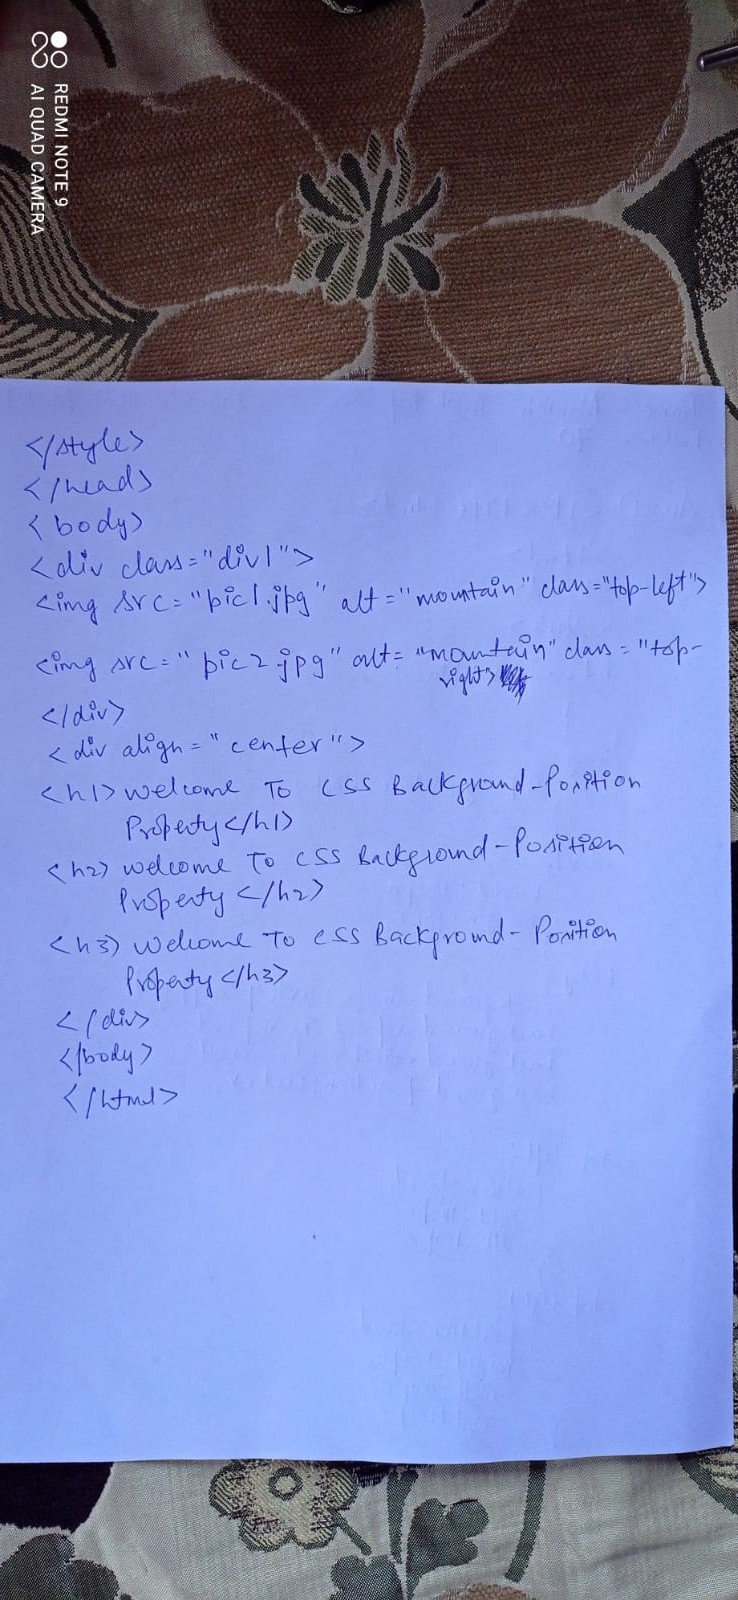 REDMI NOTE 9
AI QUAD CAMERA
</style>
</head>
<body>
<div class="div1">
<img src="pic1.jpg" alt="mountain" class="top-left">
<img src="pic2.jpg" alt="mountain" class="top-
right">
</div>
<div align="center">
<h1>Welcome To CSS Background-Position
Property</h1>
<h2>Welcome To CSS Background-Position
Property</h2>
<h3>Welcome To CSS Background-Position
Property</h3>
</div>
</body>
</html>